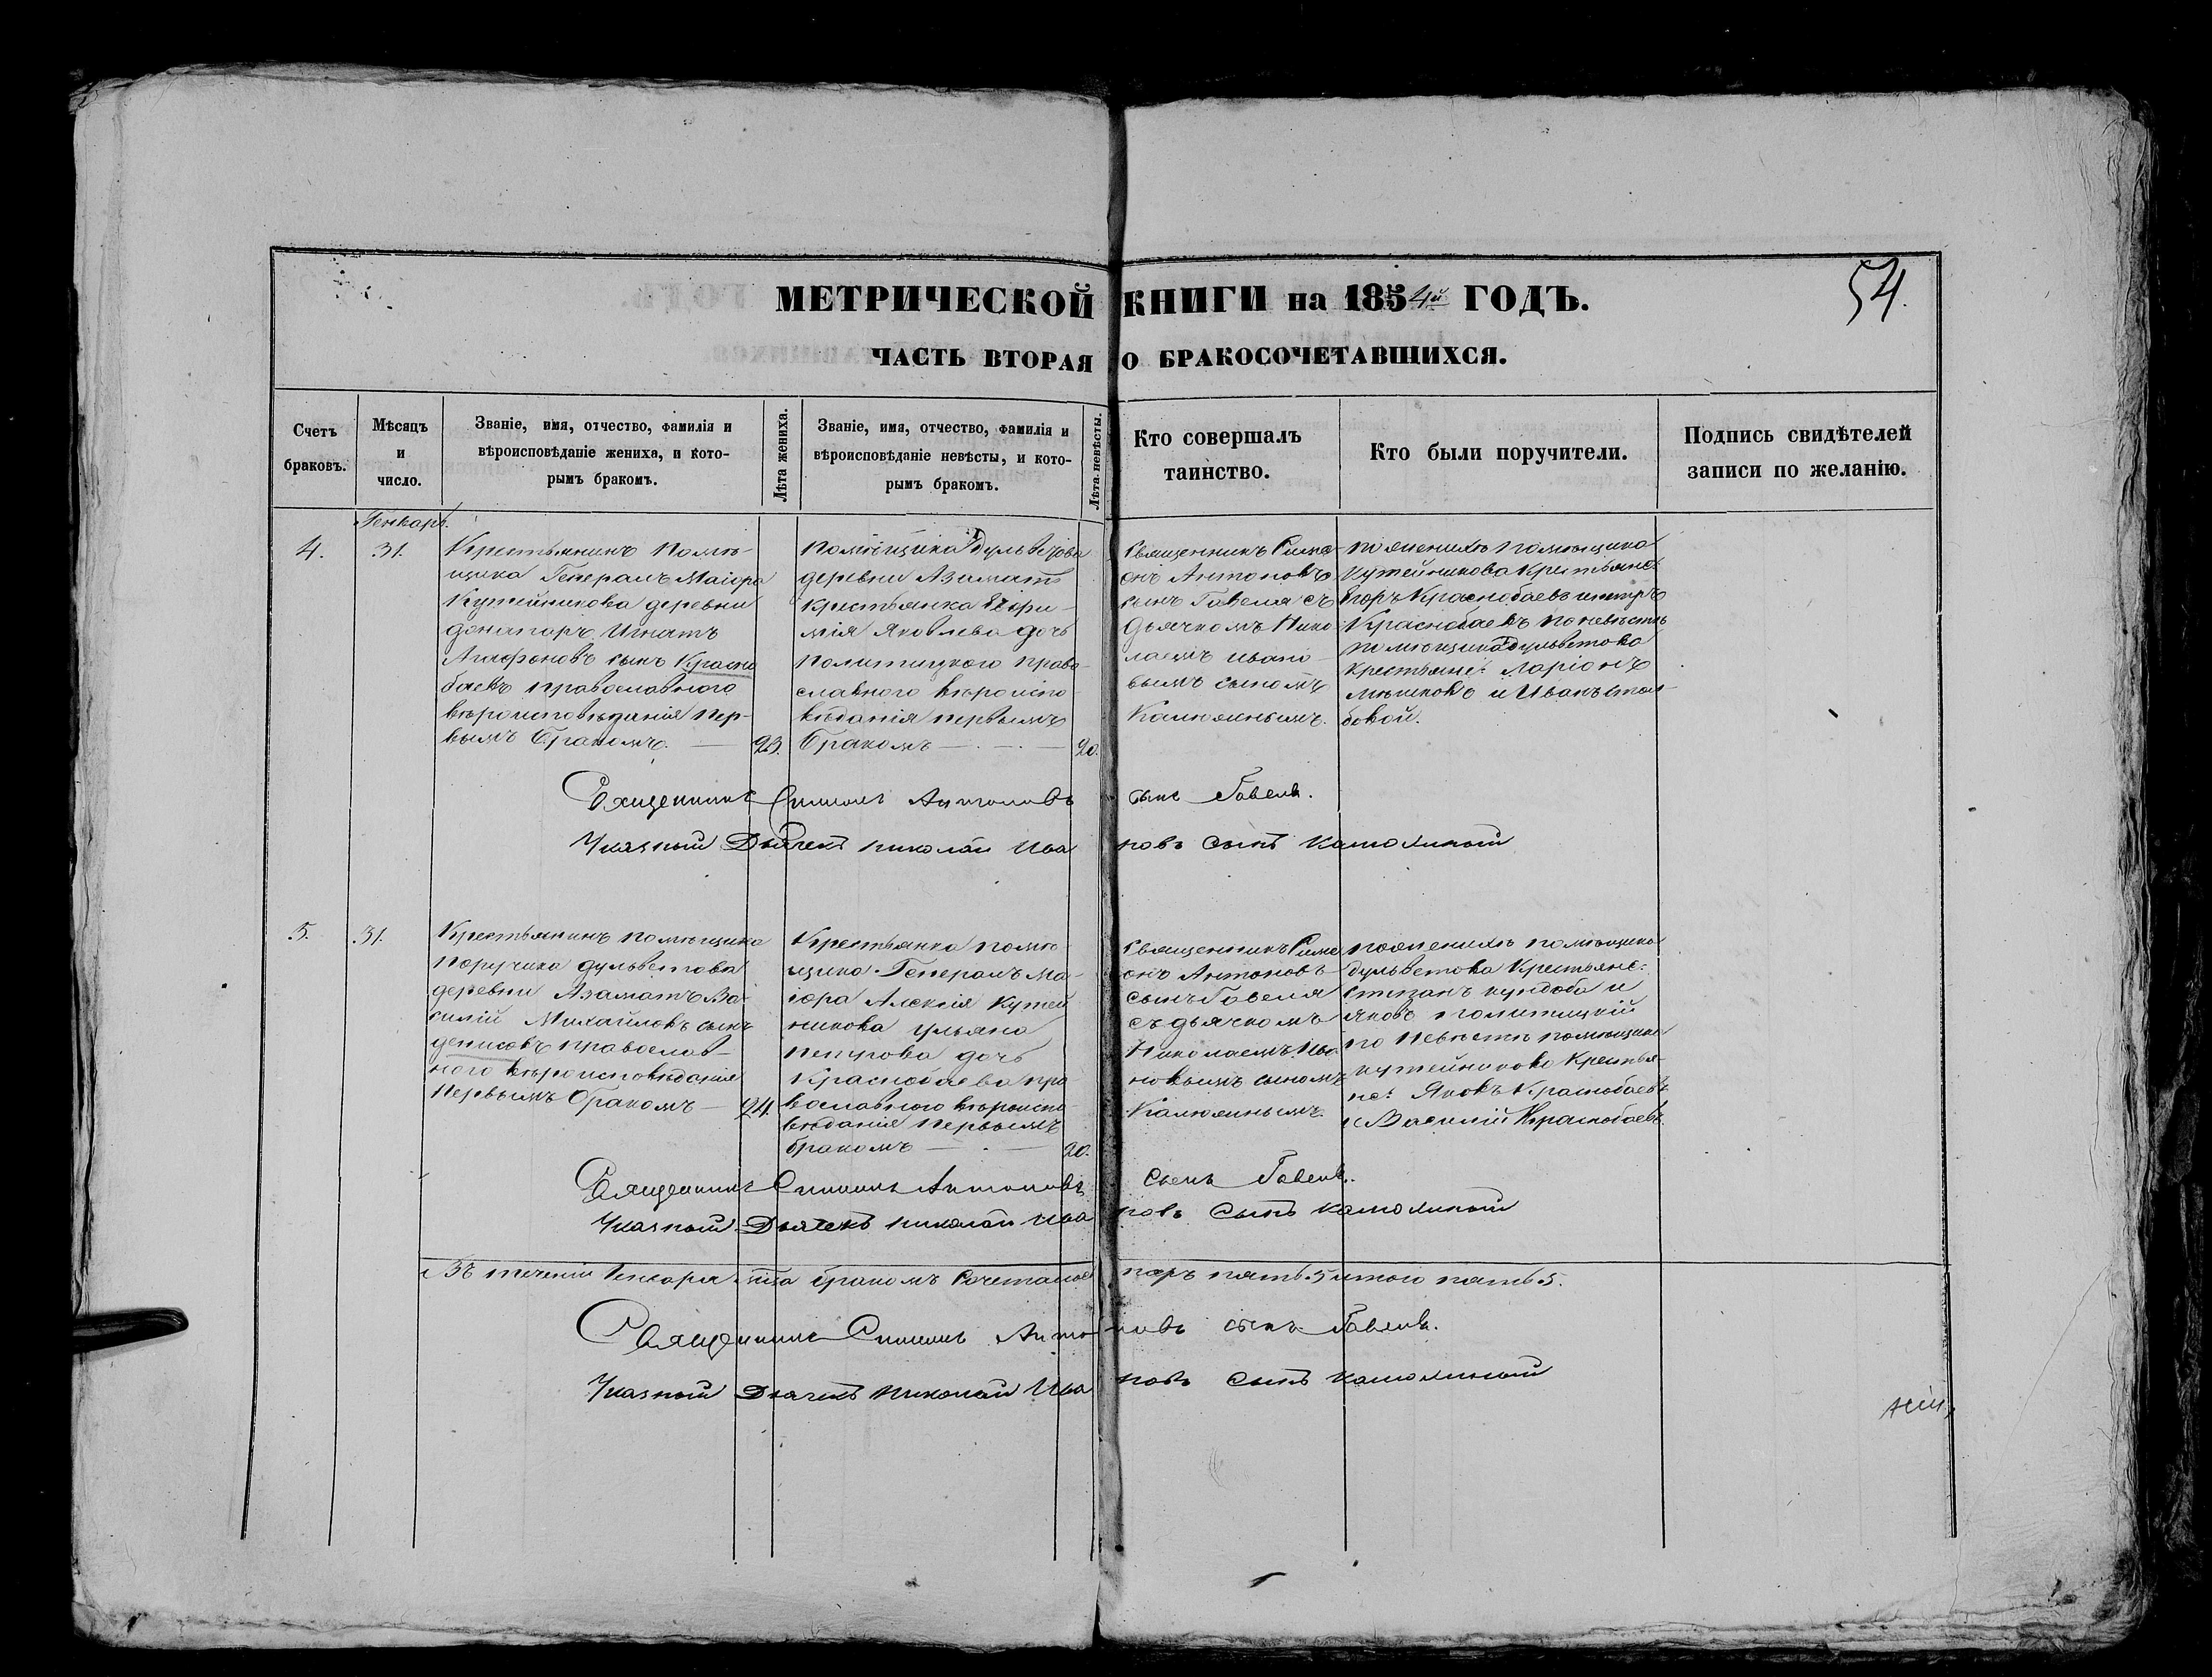 МЕТРИЧЕСКОЙ КНИГИ на 1854й ГОДЪ.
54.
ЧАСТЬ ВТОРАЯ О БРАКОСОЧЕТАВШИХСЯ.
Счетъ браковъ.
Мѣсяцъ и число.
Званіе, имя, отчество, фамилія и
вѣроисповѣданіе жениха, и кото-
рымъ бракомъ.
Лѣта жениха.
Званіе, имя, отчество, фамилія и
вѣроисповѣданіе невѣсты, и кото-
рымъ бракомъ.
Лѣта невѣсты.
Кто совершалъ
таинство.
Кто были поручители.
Подпись свидѣтелей
записи по желанію.
Генварь.
4.
31.
Крестьянинъ помѣ-
щика Генералъ Маіора
Кутейникова деревни
Игнатъ
Агафоновъ сынъ Красно
баевъ православного
вѣроисповѣданія пер-
вымъ бракомъ.
23.
помѣщика Дульветова
деревни Азаматъ
крестьянка
Яковлева дочь
Политицкого право-
славного вѣроиспо-
вѣданія первымъ
бракомъ
20.
Священникъ Симе-
онъ Антоновъ
сынъ Гавеля съ
дьячкомъ Нико-
лаемъ Ивано-
вымъ сыномъ
Калюжнымъ.
по женихѣ помѣщика
Кутейникова крестьяне:
Егоръ Краснобаевъ и Петръ
Краснобаевъ по невѣстѣ
помѣщика Дульветова
крестьяне: Ларіонъ
и Иванъ
бовой.
Священникъ Симеонъ Антоновъ сынъ Гавеля.
Указный Дьячекъ Николай Ивановъ Сынъ Калюжный
5.
31.
Крестьянинъ помѣщика
поручика дульветова
деревни Азаматъ Ва-
силій Михайловъ сынъ
денисовъ православ-
ного вѣроисповѣданія
первымъ бракомъ
24.
Крестьянка помѣ-
щика Генералъ Ма-
іора Алексія Кутей
никова ульяна
петрова дочь
Краснобаева пра
вославного вѣроиспо
вѣданія первымъ
бракомъ
20.
Священникъ Симе
онъ Антоновъ
сынъ Гавеля
съ дьячкомъ
Николаемъ Ива
новымъ сыномъ
Калюжнымъ.
по женихѣ помѣщика
дульветова Крестьяне:
степанъ кундоба и
Яковъ политицкій
по невѣстѣ помѣщика
кутейникова Крестья-
не: Яковъ Краснобаевъ
и Василій Краснобаевъ.
Священникъ Симеонъ Антоновъ Сынъ Гавеля.
Указный Дьячекъ Николай Ивановъ Сынъ Калюжный
Въ теченіи Генваря мца бракомъ Сочеталось паръ пять 5 итого пять 5.
Священникъ Симеонъ Антоновъ сынъ Гавеля.
Указный Дьячекъ Николай Ивановъ Сынъ Калюжный